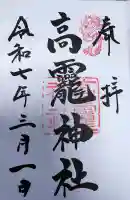 奉拝
高龗神社
令和七年三月一日